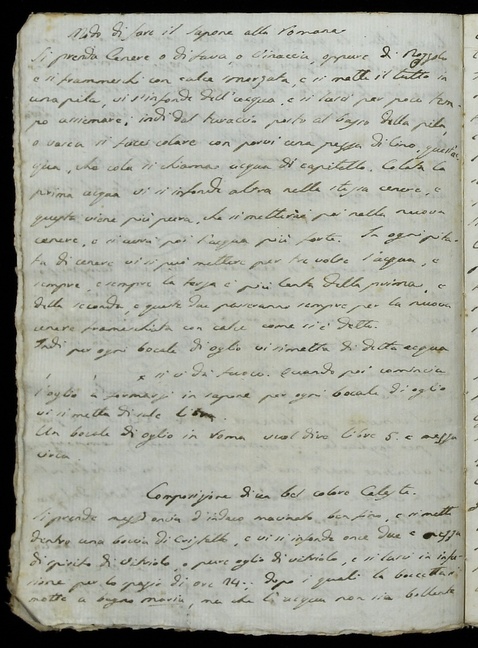 Modo di fare il sapone alla romana
Si prenda Cenere o di fava, o Vinaccia, oppure di
e si frammeschi con calce smorzata, e si mette il tutto in
una pila, vi s'infonde dell'acqua, e si lasci per poco tem-
po assieme; indi dal turaccio posto al basso della pila,
o vasca si facci colare con porvi una pezza di lino, quest'ac-
qua, che cola si chiama acqua di capitello. Colata la
prima acqua vi si infonde altra nella stessa cenere, e
questa viene più pura, che si metterà poi nella nuova
cenere, e si avrà poi l'acqua più forte. In ogni pila-
ta di cenere vi si può mettere per tre volte l'acqua, e
sempre, e sempre la terza è più lenta della prima, e
della seconda, e queste due passeranno sempre per la nuova
cenere frameschiata con calce come si è detto.
Indi per ogni bocale di oglio vi si metta di detta acqua
si vi dà fuoco. Quando poi comincia
l'oglio a formarsi in sapone per ogni bocale di oglio
vi si metta di sale libra
Un bocale di oglio in Roma vuol dire libre 5. e mezza
circa
Composizione di un bel colore Celeste.
Si prende mezz'oncia d'indaco macinato ben fino, e si mette
dentro una boccia di Cristallo, e vi si infonde once due e mezza
di spirito di vitriolo, o pure oglio di vitriolo, e si lasci in infu-
sione per lo spazio di ore 24:, dopo i quali la boccetta si
mette a bagno maria, ma che l'acqua non sia bollente